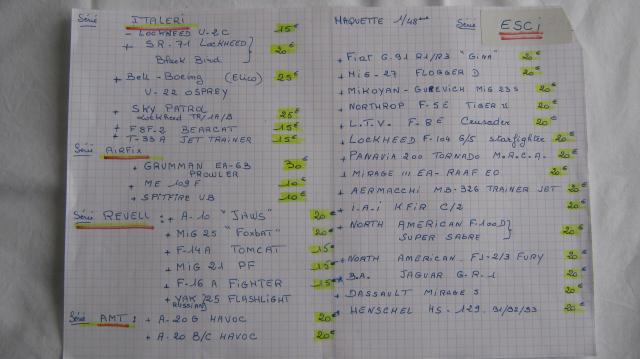 Série ITALERI
- LOCKHEED U-2C 15€
+ SR.71 LOCKHEED
Black Bird 20€
+ BELL-BOEING (Elico) 25€
U-22 OSPREY
+ SKY PATROL
Lockheed TR/1A/B 25€
+ F8F-2 BEARCAT 15€
+ T-33A JET TRAINER 15€
Série AIRFIX
+ GRUMMAN EA-6B 30€
PROWLER
+ ME 109F 10€
+ SPITFIRE VB 10€
Série REVELL: + A-10 "JAWS" 20€
+ MiG 25 "Foxbat" 20€
+ F-14A TOMCAT 15€
+ MiG 21 PF 15€
+ F-16 A FIGHTER 15€
+ YAK/25 FLASHLIGHT 20€
RUSSIAN
Série AMT: + A-20G HAVOC 20€
+ A-20 B/C HAVOC 20€
MAQUETTE 1/48ème Série ESCI
+ FIAT G.91 R1/R3 "GINA" 20€
+ MiG-27 FLOGGER D 20€
+ MIKOYAN-GUREVICH MiG 23S 20€
+ NORTHROP F-5E TIGER II 20€
+ L.T.V. F-8E Crusader 20€
+ LOCKHEED F-104 G/S Starfighter 20€
+ PANAVIA 200 TORNADO M.R.C.A. 20€
+ MIRAGE III EA-RAAF EO 20€
+ AERMACCHI MB-326 TRAINER JET 20€
+ I.A.I KFIR C/2 20€
+ NORTH AMERICAN F-100D
SUPER SABRE 20€
+ NORTH AMERICAN FJ-2/3 FURY 20€
B.A. JAGUAR G.R-1 20€
+ DASSAULT MIRAGE 5 20€
+ HENSCHEL HS-129. B1/B2/B3 20€